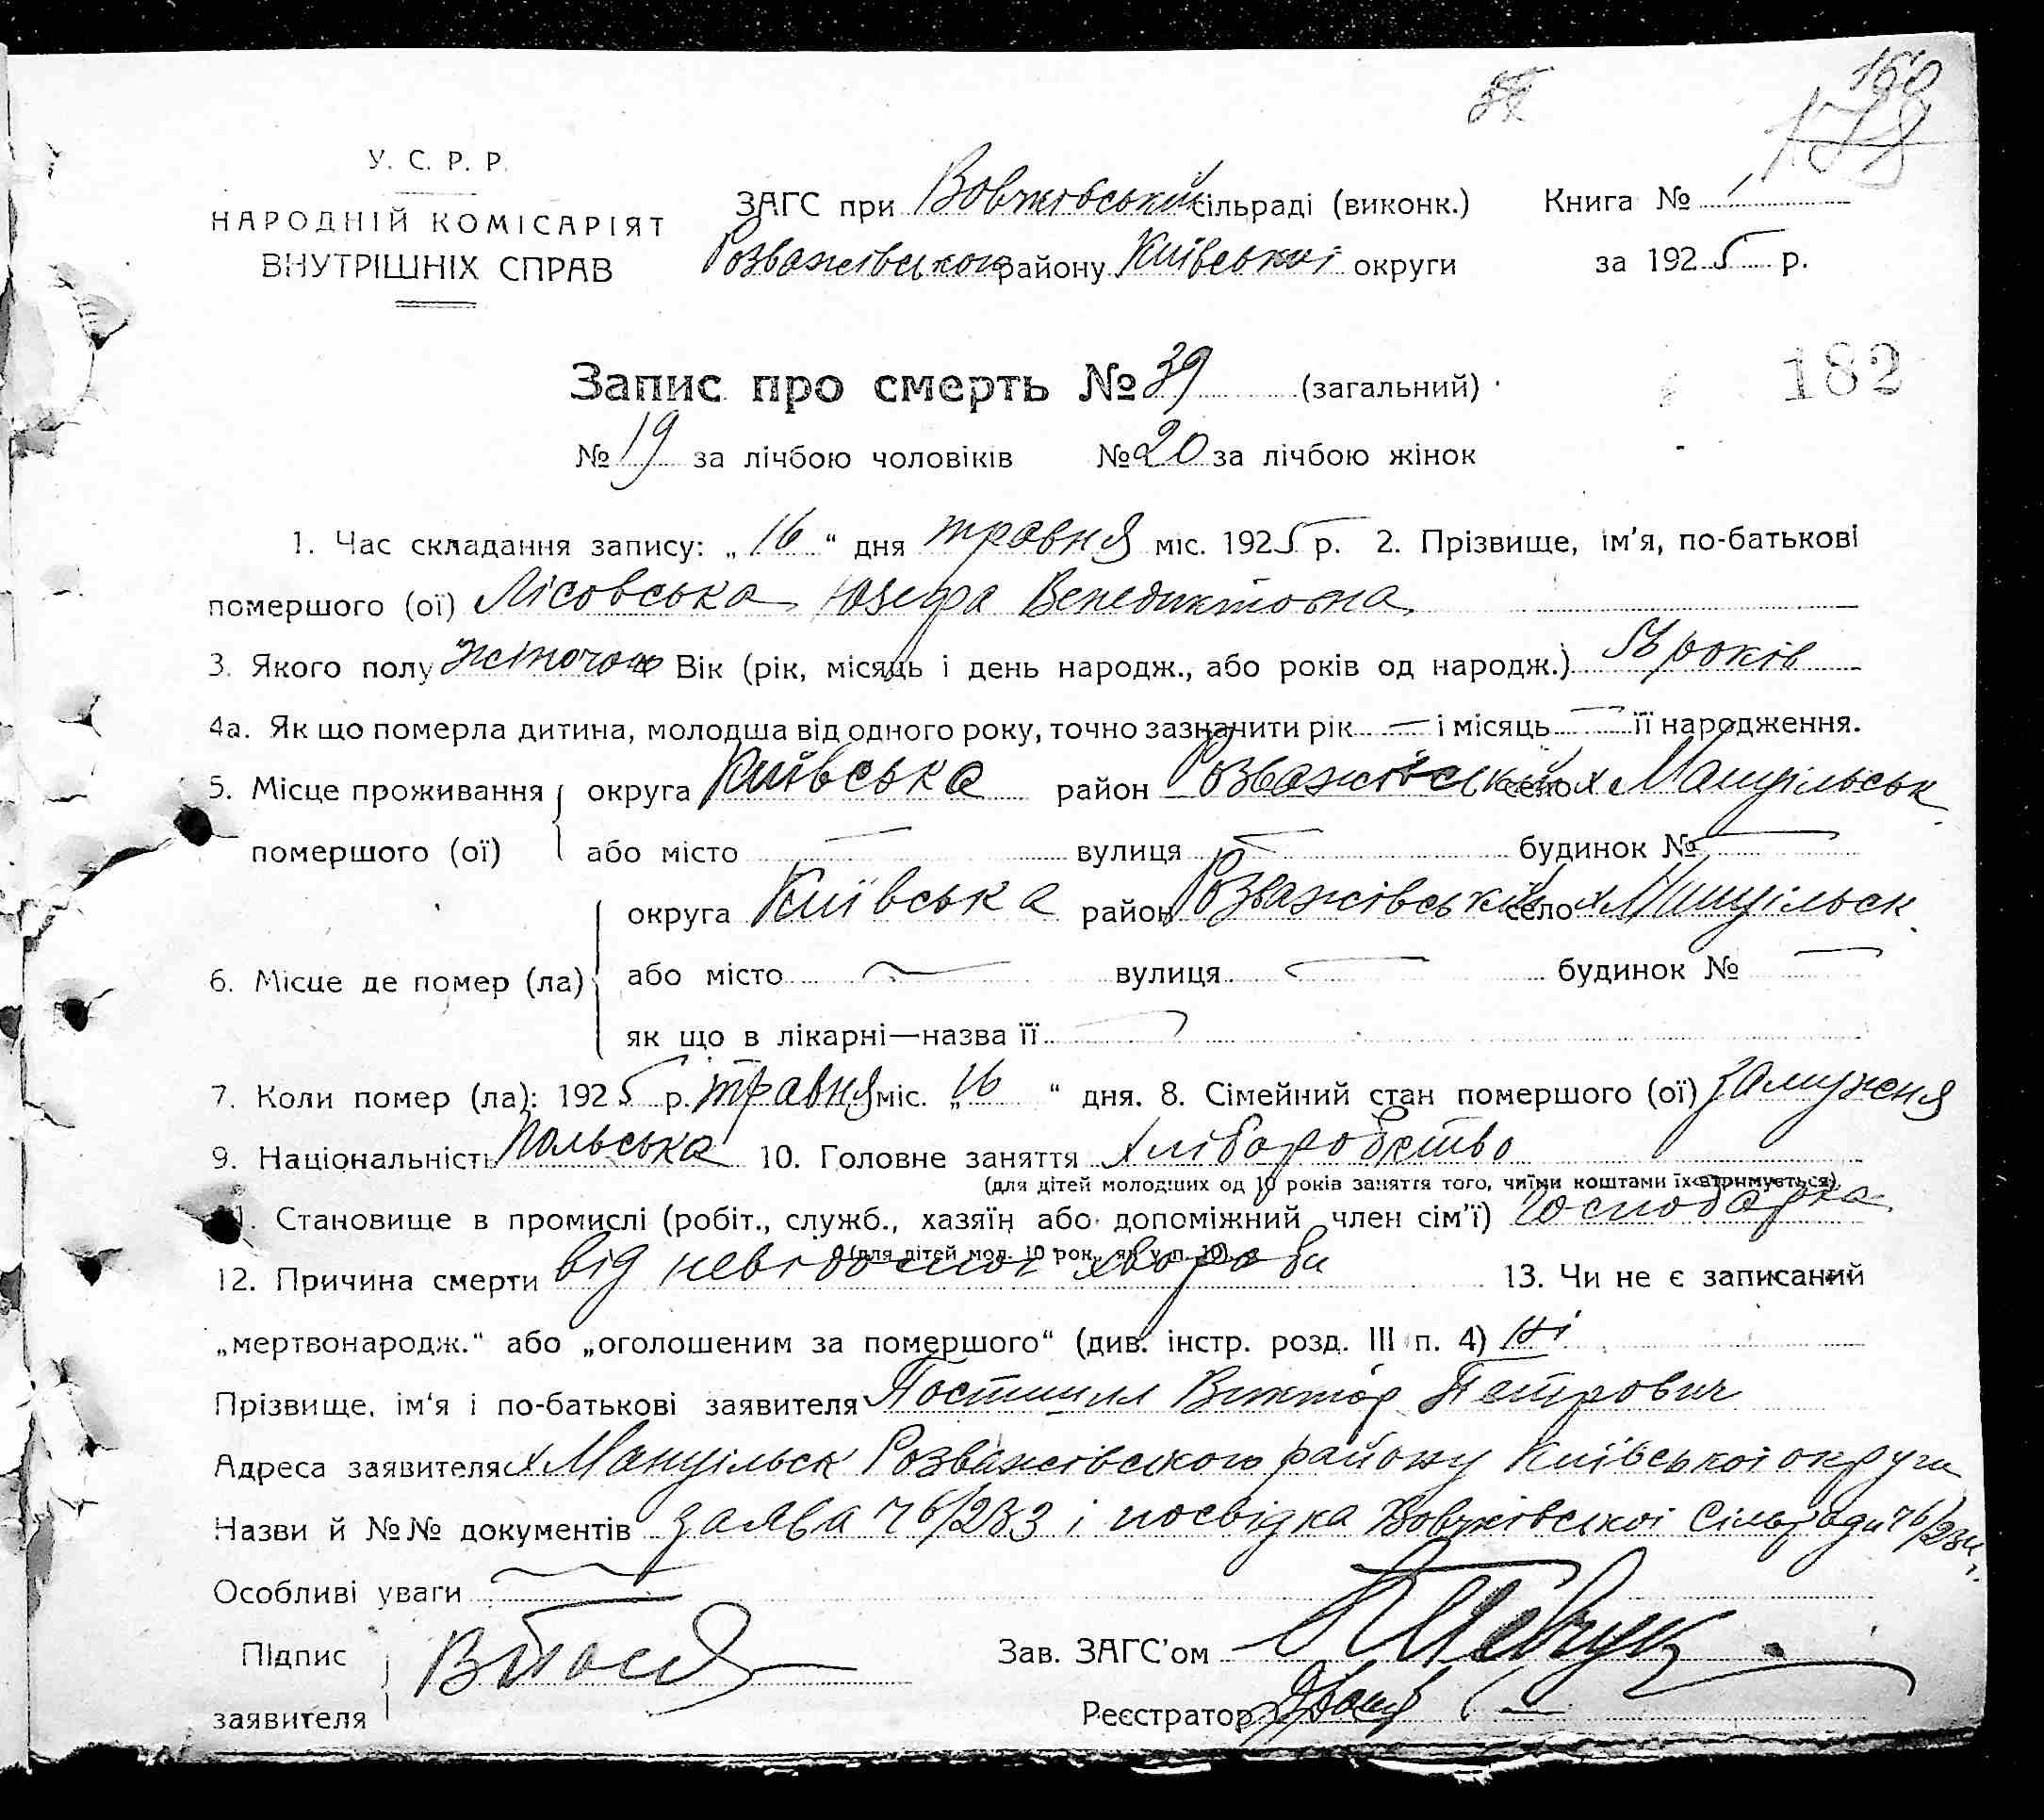 160
178
У. С. Р. Р.
НАРОДНІЙ КОМІСАРІЯТ
ВНУТРІШНІХ СПРАВ
ЗАГС при Вовчківській сільраді (виконк.) Книга № 1
Розважівського району Київської округи за 1925 р.
182
Запис про смерть № 39 (загальний)
№ 19 за лічбою чоловіків № 20 за лічбою жінок
1. Час складання запису: „16“ дня травня міс. 1925 р. 2. Прізвище, ім'я, по-батькові
помершого (ої) Лісовська Юзефа Венедиктовна
3. Якого полу жіночого Вік (рік, місяць і день народж., або років од народж.) років
4а. Як що померла дитина, молодша від одного року, точно зазначити рік — і місяць — її народження.
5. Місце проживання округа Київська район Розважівський село х Мануільськ
помершого (ої) або місто — вулиця — будинок № —
округа Київська район Розважівський село х Мануільск.
6. Місце де помер (ла) або місто — вулиця — будинок № —
як що в лікарні—назва її —
7. Коли помер (ла): 1925 р. травня міс. „16“ дня. 8. Сімейний стан помершого (ої) замужня
9. Національність польська 10. Головне заняття хліборобство
(для дітей молодших од 10 років заняття того, чиїми коштами їх втримується)
11. Становище в промислі (робіт., служб., хазяїн або допоміжний член сім'ї) господарка
(для дітей мол. 10 рок. як у п. 10)
12. Причина смерти від невідомої хвороби 13. Чи не є записаний
„мертвонародж.“ або „оголошеним за помершого“ (див. інстр. розд. III п. 4) ні
Прізвище, ім'я і по-батькові заявителя Віктор Петрович
Адреса заявителя х Мануільск Розважівського району Київської округи
Назви й №№ документів заява Чб/233 і посвідка Вовчківської Сільради Чб/234.
Особливі уваги —
Підпис
заявителя
Зав. ЗАГС'ом
Реєстратор